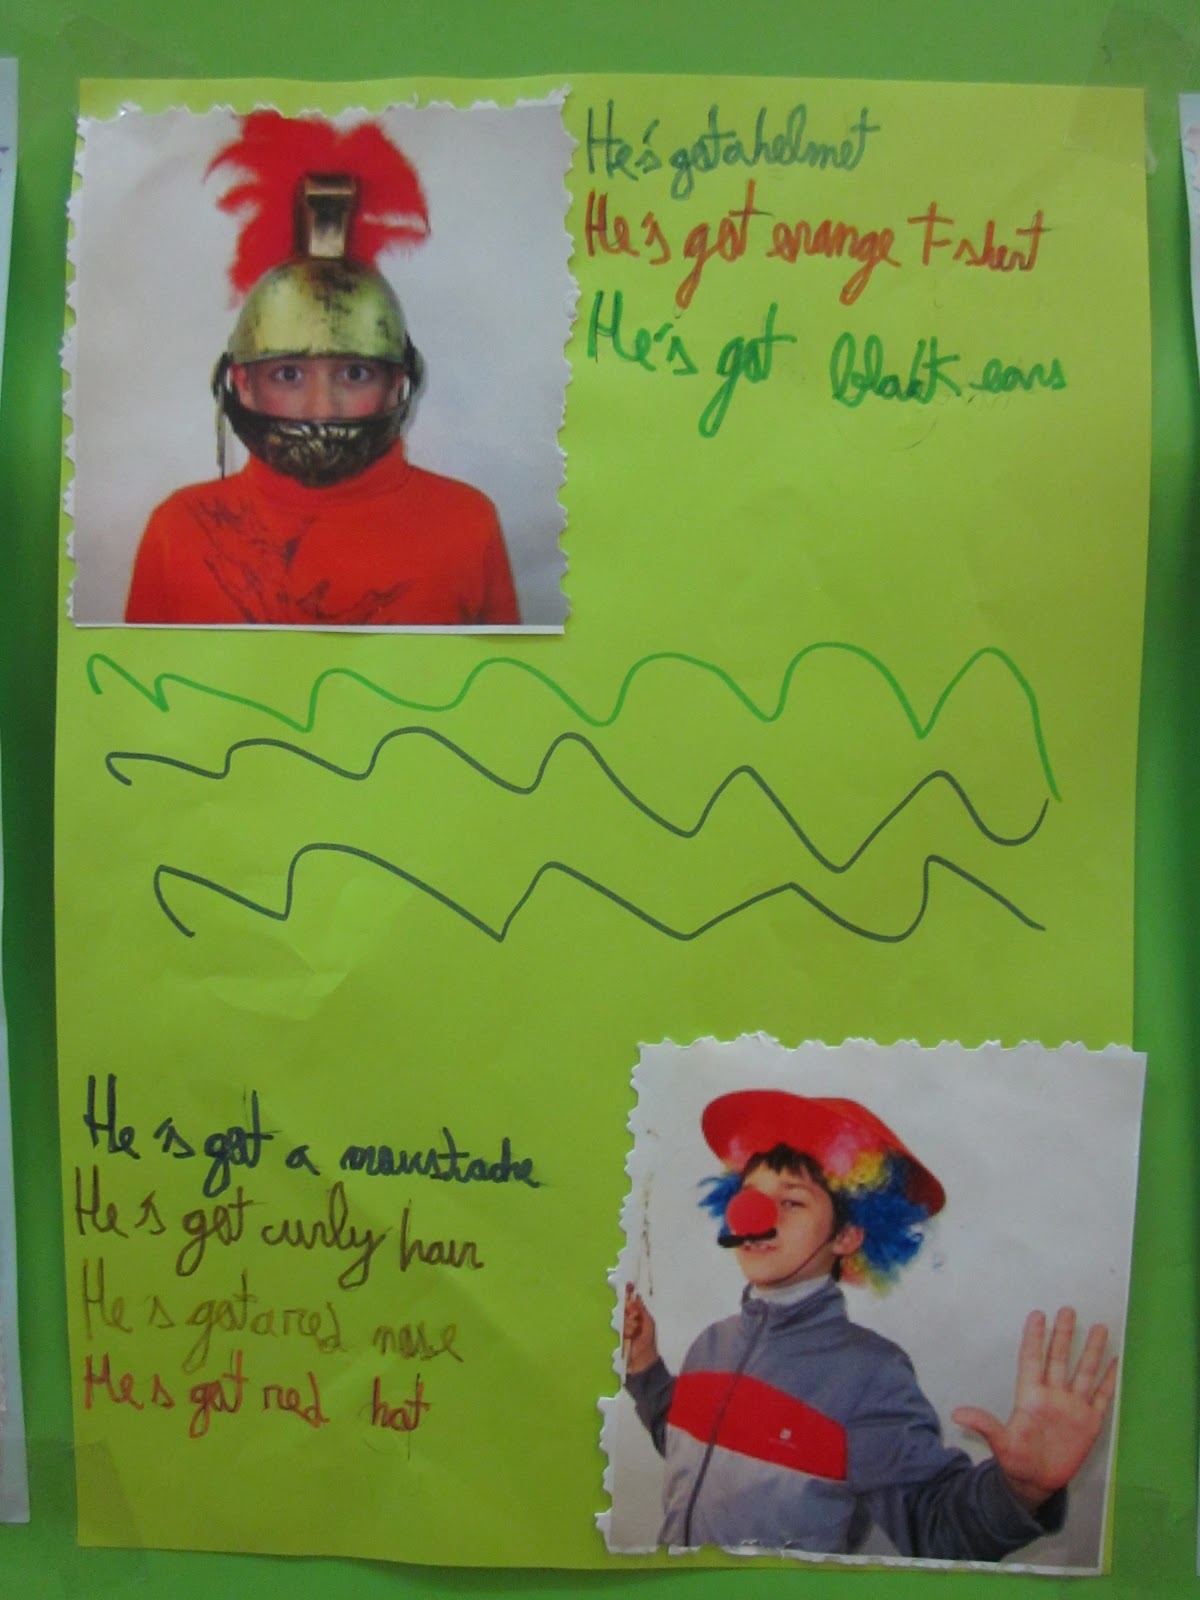 He's got a helmet
He's got orange T-shirt
He's got black ears
He's got a moustache
He's got curly hair
He's got a red nose
He's got red hat